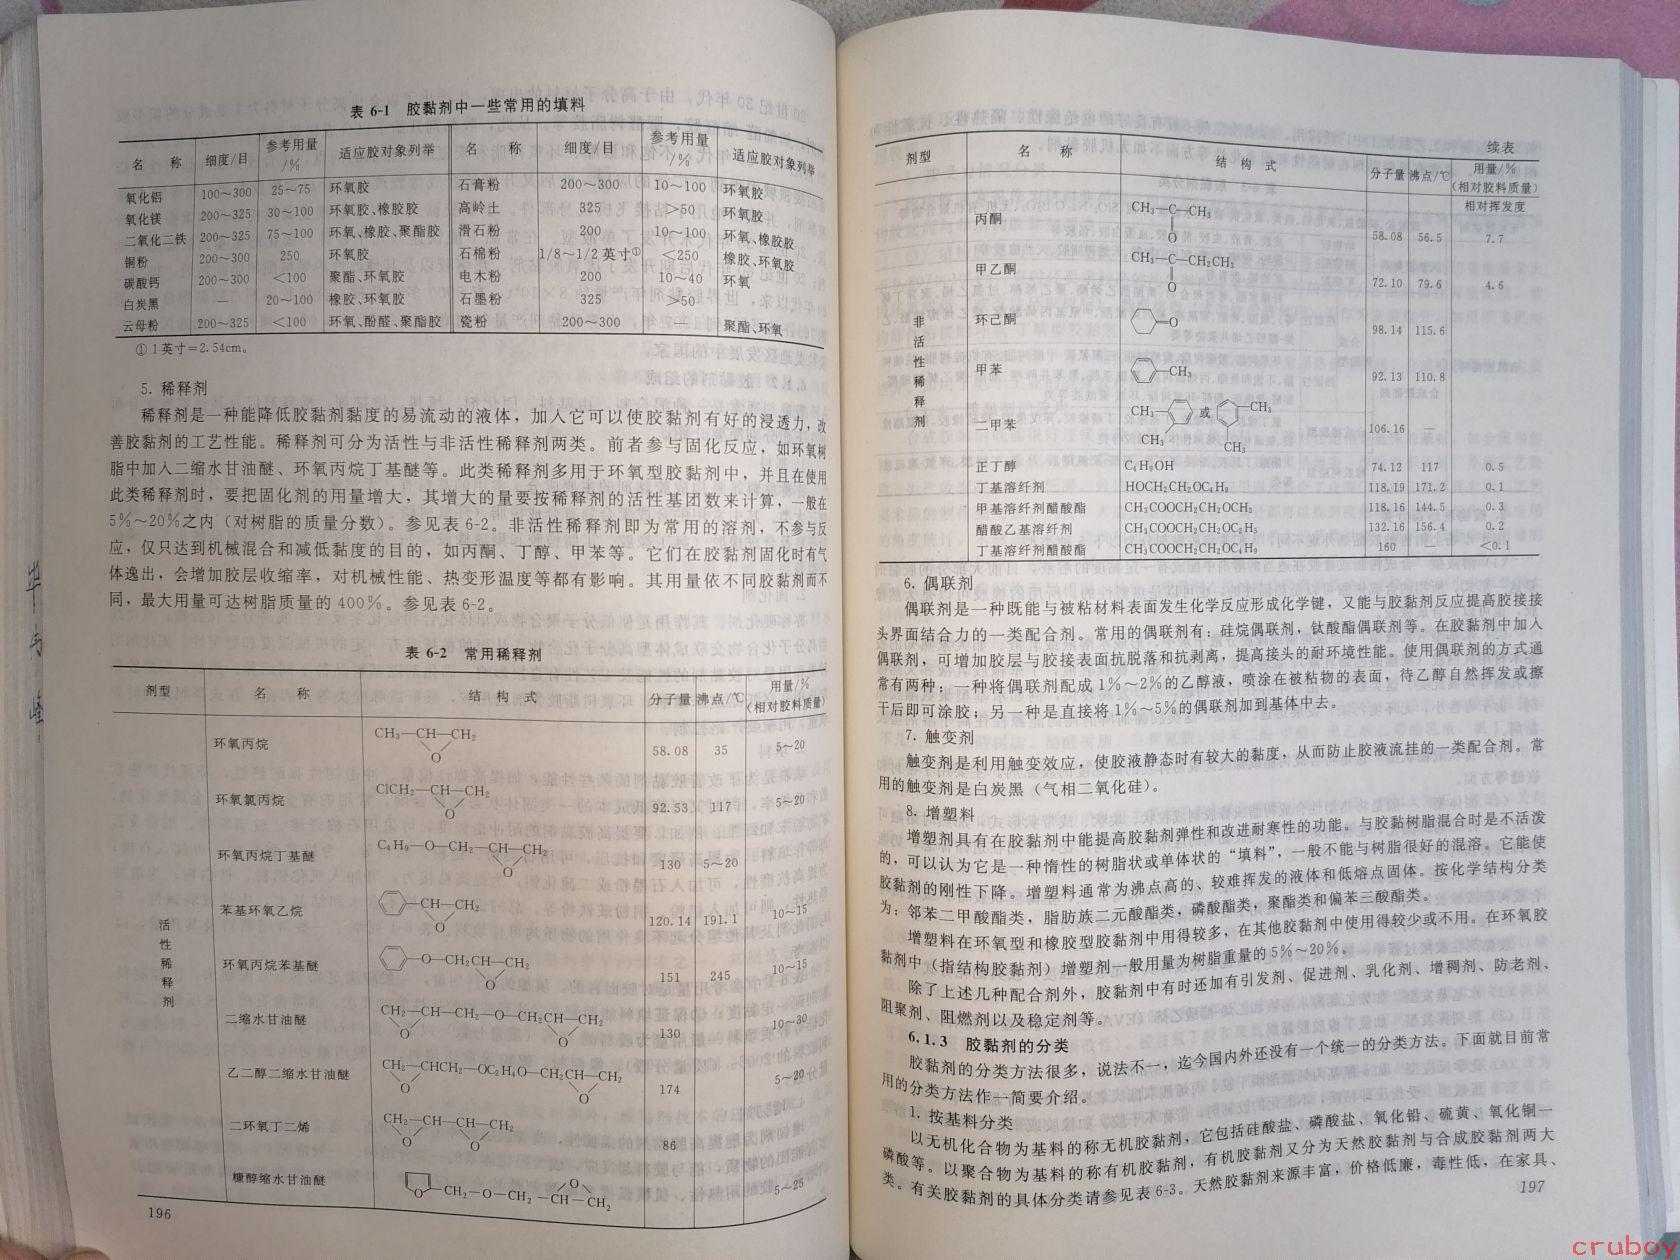 表 6-1　胶黏剂中一些常用的填料
名　称　细度/目　参考用量/%　适应胶对象列举　名　称　细度/目　参考用量/%　适应胶对象列举
氧化铝　100～300　25～75　环氧胶　石膏粉　200～300　10～100　环氧胶
氧化镁　200～325　30～100　环氧胶、橡胶胶　高岭土　325　＞50　环氧胶
二氧化二铁　200～325　75～100　环氧、橡胶、聚酯胶　滑石粉　200　10～100　环氧、橡胶胶
铜粉　200～300　250　环氧胶　石棉粉　1/8～1/2 英寸①　＜250　橡胶、环氧胶
碳酸钙　200～300　＜100　聚酯、环氧胶　电木粉　200　10～40　环氧
白炭黑　—　20～100　橡胶、环氧胶　石墨粉　325　＞50
云母粉　200～325　＜100　环氧、酚醛、聚酯胶　瓷粉　200～300　—　聚酯、环氧
① 1英寸＝2.54cm。
5. 稀释剂
稀释剂是一种能降低胶黏剂黏度的易流动的液体，加入它可以使胶黏剂有好的浸透力，改
善胶黏剂的工艺性能。稀释剂可分为活性与非活性稀释剂两类。前者参与固化反应，如环氧树
脂中加入二缩水甘油醚、环氧丙烷丁基醚等。此类稀释剂多用于环氧型胶黏剂中，并且在使用
此类稀释剂时，要把固化剂的用量增大，其增大的量要按稀释剂的活性基团数来计算，一般在
5%～20%之内（对树脂的质量分数）。参见表 6-2。非活性稀释剂即为常用的溶剂，不参与反
应，仅只达到机械混合和减低黏度的目的，如丙酮、丁醇、甲苯等。它们在胶黏剂固化时有气
体逸出，会增加胶层收缩率，对机械性能、热变形温度等都有影响。其用量依不同胶黏剂而不
同，最大用量可达树脂质量的 400%。参见表 6-2。
表 6-2　常用稀释剂
剂型　名　称　结　构　式　分子量　沸点/℃　用量/%(相对胶料质量)
活性稀释剂
环氧丙烷　CH₃—CH—CH₂ O　58.08　35　5～20
环氧氯丙烷　ClCH₂—CH—CH₂ O　92.53　117　5～20
环氧丙烷丁基醚　C₄H₉—O—CH₂—CH—CH₂ O　130　5～20
苯基环氧乙烷　CH—CH₂ O　120.14　191.1　10～15
环氧丙烷苯基醚　O—CH₂CH—CH₂ O　151　245　10～15
二缩水甘油醚　CH₂—CH—CH₂—O—CH₂CH—CH₂ O O　130　10～30
乙二醇二缩水甘油醚　CH₂—CHCH₂—OC₂H₄O—CH₂CH—CH₂ O O　174　5～20
二环氧丁二烯　CH₂—CH—CH—CH₂ O O　86
糠醇缩水甘油醚　O CH₂—O—CH₂—CH—CH₂ O　5～25
196
续表
剂型　名　称　结　构　式　分子量　沸点/℃　用量/%(相对胶料质量)
相对挥发度
非活性稀释剂
丙酮　CH₃—C—CH₃ O　58.08　56.5　7.7
甲乙酮　CH₃—C—CH₂CH₃ O　72.10　79.6　4.6
环己酮　O　98.14　115.6
甲苯　CH₃　92.13　110.8
二甲苯　CH₃ CH₃ 或 CH₃ CH₃　106.16　—
正丁醇　C₄H₉OH　74.12　117　0.5
丁基溶纤剂　HOCH₂CH₂OC₄H₉　118.19　171.2　0.1
甲基溶纤剂醋酸酯　CH₃COOCH₂CH₂OCH₃　118.16　144.5　0.3
醋酸乙基溶纤剂　CH₃COOCH₂CH₂OC₂H₅　132.16　156.4　0.2
丁基溶纤剂醋酸酯　CH₃COOCH₂CH₂OC₄H₉　160　—　＜0.1
6. 偶联剂
偶联剂是一种既能与被粘材料表面发生化学反应形成化学键，又能与胶黏剂反应提高胶接接
头界面结合力的一类配合剂。常用的偶联剂有：硅烷偶联剂，钛酸酯偶联剂等。在胶黏剂中加入
偶联剂，可增加胶层与胶接表面抗脱落和抗剥离，提高接头的耐环境性能。使用偶联剂的方式通
常有两种：一种将偶联剂配成 1%～2%的乙醇液，喷涂在被粘物的表面，待乙醇自然挥发或擦
干后即可涂胶；另一种是直接将 1%～5%的偶联剂加到基体中去。
7. 触变剂
触变剂是利用触变效应，使胶液静态时有较大的黏度，从而防止胶液流挂的一类配合剂。常
用的触变剂是白炭黑（气相二氧化硅）。
8. 增塑料
增塑剂具有在胶黏剂中能提高胶黏剂弹性和改进耐寒性的功能。与胶黏树脂混合时是不活泼
的，可以认为它是一种惰性的树脂状或单体状的“填料”，一般不能与树脂很好的混溶。它能使
胶黏剂的刚性下降。增塑料通常为沸点高的、较难挥发的液体和低熔点固体。按化学结构分类
为：邻苯二甲酸酯类，脂肪族二元酸酯类，磷酸酯类，聚酯类和偏苯三酸酯类。
增塑料在环氧型和橡胶型胶黏剂中用得较多，在其他胶黏剂中使用得较少或不用。在环氧胶
黏剂中（指结构胶黏剂）增塑剂一般用量为树脂重量的 5%～20%。
除了上述几种配合剂外，胶黏剂中有时还加有引发剂、促进剂、乳化剂、增稠剂、防老剂、
阻聚剂、阻燃剂以及稳定剂等。
6.1.3　胶黏剂的分类
胶黏剂的分类方法很多，说法不一，迄今国内外还没有一个统一的分类方法。下面就目前常
用的分类方法作一简要介绍。
1. 按基料分类
以无机化合物为基料的称无机胶黏剂，它包括硅酸盐、磷酸盐、氧化铅、硫黄、氧化铜一
磷酸等。以聚合物为基料的称有机胶黏剂，有机胶黏剂又分为天然胶黏剂与合成胶黏剂两大
类。有关胶黏剂的具体分类请参见表 6-3。天然胶黏剂来源丰富，价格低廉，毒性低，在家具、
197
cruboy